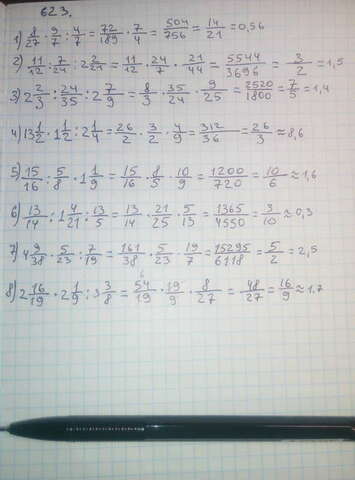 623.
1) 8/27 · 9/7 : 4/7 = 72/189 · 7/4 = 504/756 = 14/21 = 0,56
2) 11/12 : 7/24 : 2 2/21 = 11/12 · 24/7 · 21/44 = 5544/3696 = 3/2 = 1,5
3) 2 2/3 : 24/35 : 2 7/9 = 8/3 · 35/24 · 9/25 = 2520/1800 = 7/5 = 1,4
4) 13 1/2 · 1 1/2 : 2 1/4 = 26/2 · 3/2 · 4/9 = 312/36 = 26/3 ≈ 8,6
5) 15/16 : 5/8 · 1 1/9 = 15/16 · 8/5 · 10/9 = 1200/720 = 10/6 ≈ 1,6
6) 13/14 : 1 4/21 : 13/5 = 13/14 · 21/25 · 5/13 = 1365/4550 = 3/10 ≈ 0,3
7) 4 9/38 · 5/23 : 7/19 = 161/38 · 5/23 · 19/7 = 15295/6118 = 5/2 = 2,5
8) 2 16/19 · 2 1/9 : 3 3/8 = 54/19 · 19/9 · 8/27 = 48/27 = 16/9 ≈ 1.7